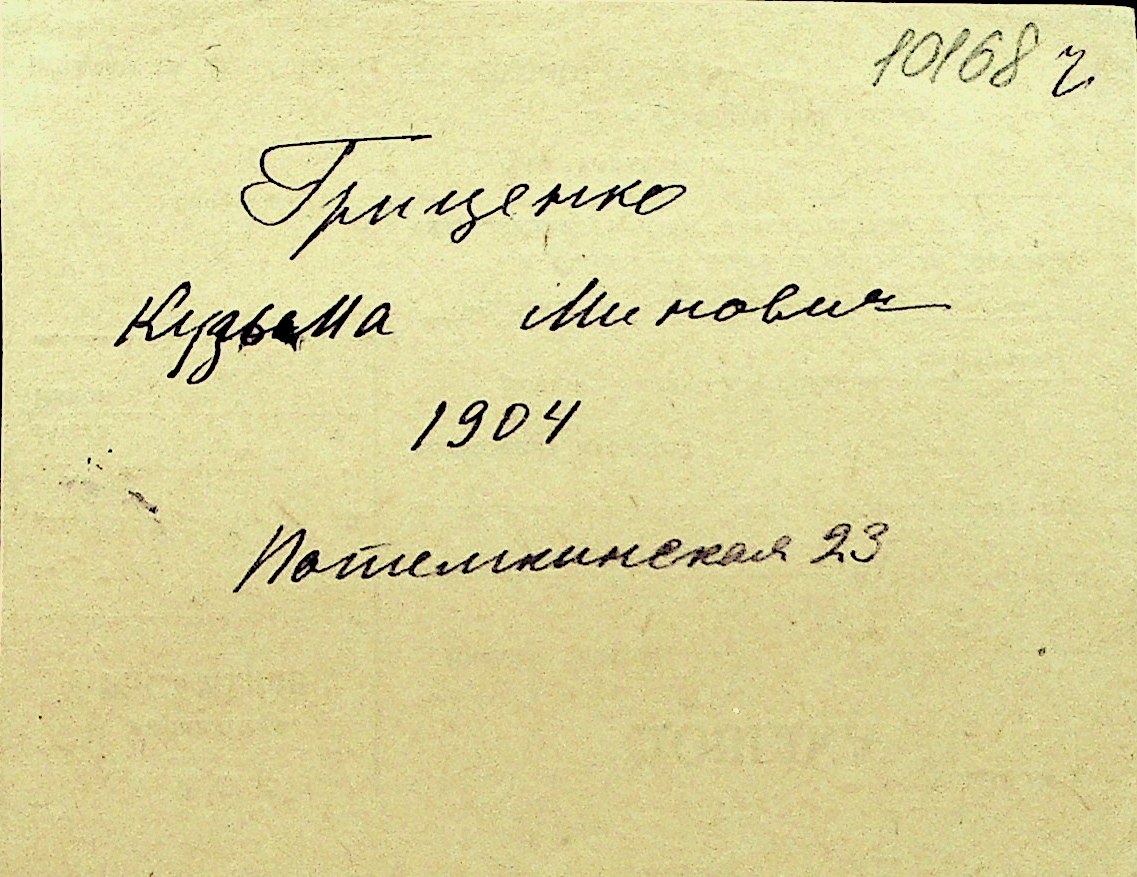 10168 ч
Гриценко
Кузьма Минович
1904
Потемкинская 23